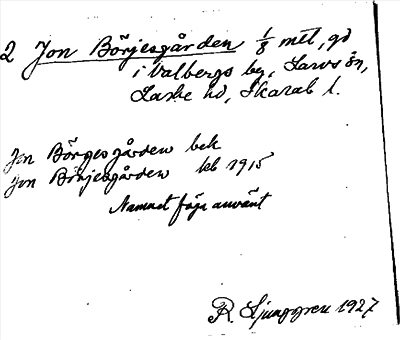 2 Jon Börjesgården 1/8 mtl, gd
i Valbergs by, Larvs sn,
Laske hd, Skarab. l.
Jon Börgesgården bek
Jon Börjesgården leb 1915
Namnet föga använt
R. Ljunggren 1927